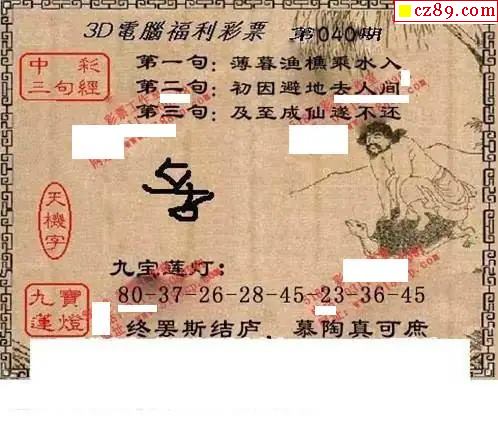 cz89.com
3D電腦福利彩票 第040期
中彩
三句經
第一句：薄暮渔樵乘水入
第二句：初因避地去人间
第三句：及至成仙遂不还
天機字
九宝莲灯：
九寶
蓮燈
80-37-26-28-45 23-36-45
终罢斯结庐，慕陶真可庶